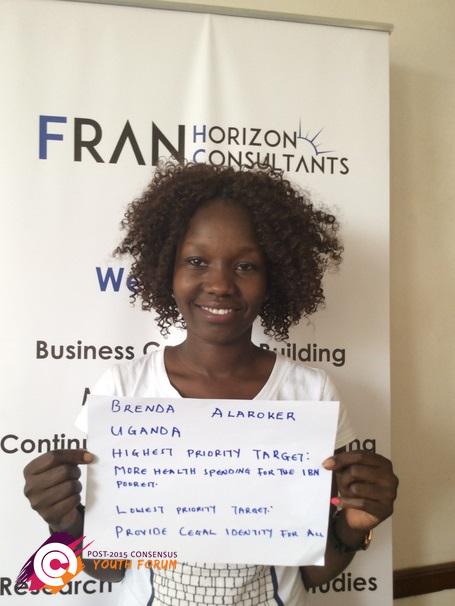 FRAN HORIZON CONSULTANTS
We
Business C Building
Contin ng
BRENDA ALAROKER
UGANDA
HIGHEST PRIORITY TARGET:
MORE HEALTH SPENDING FOR THE 1BN
POOREST.
LOWEST PRIORITY TARGET:
PROVIDE LEGAL IDENTITY FOR ALL
POST-2015 CONSENSUS
YOUTH FORUM
Research Studies